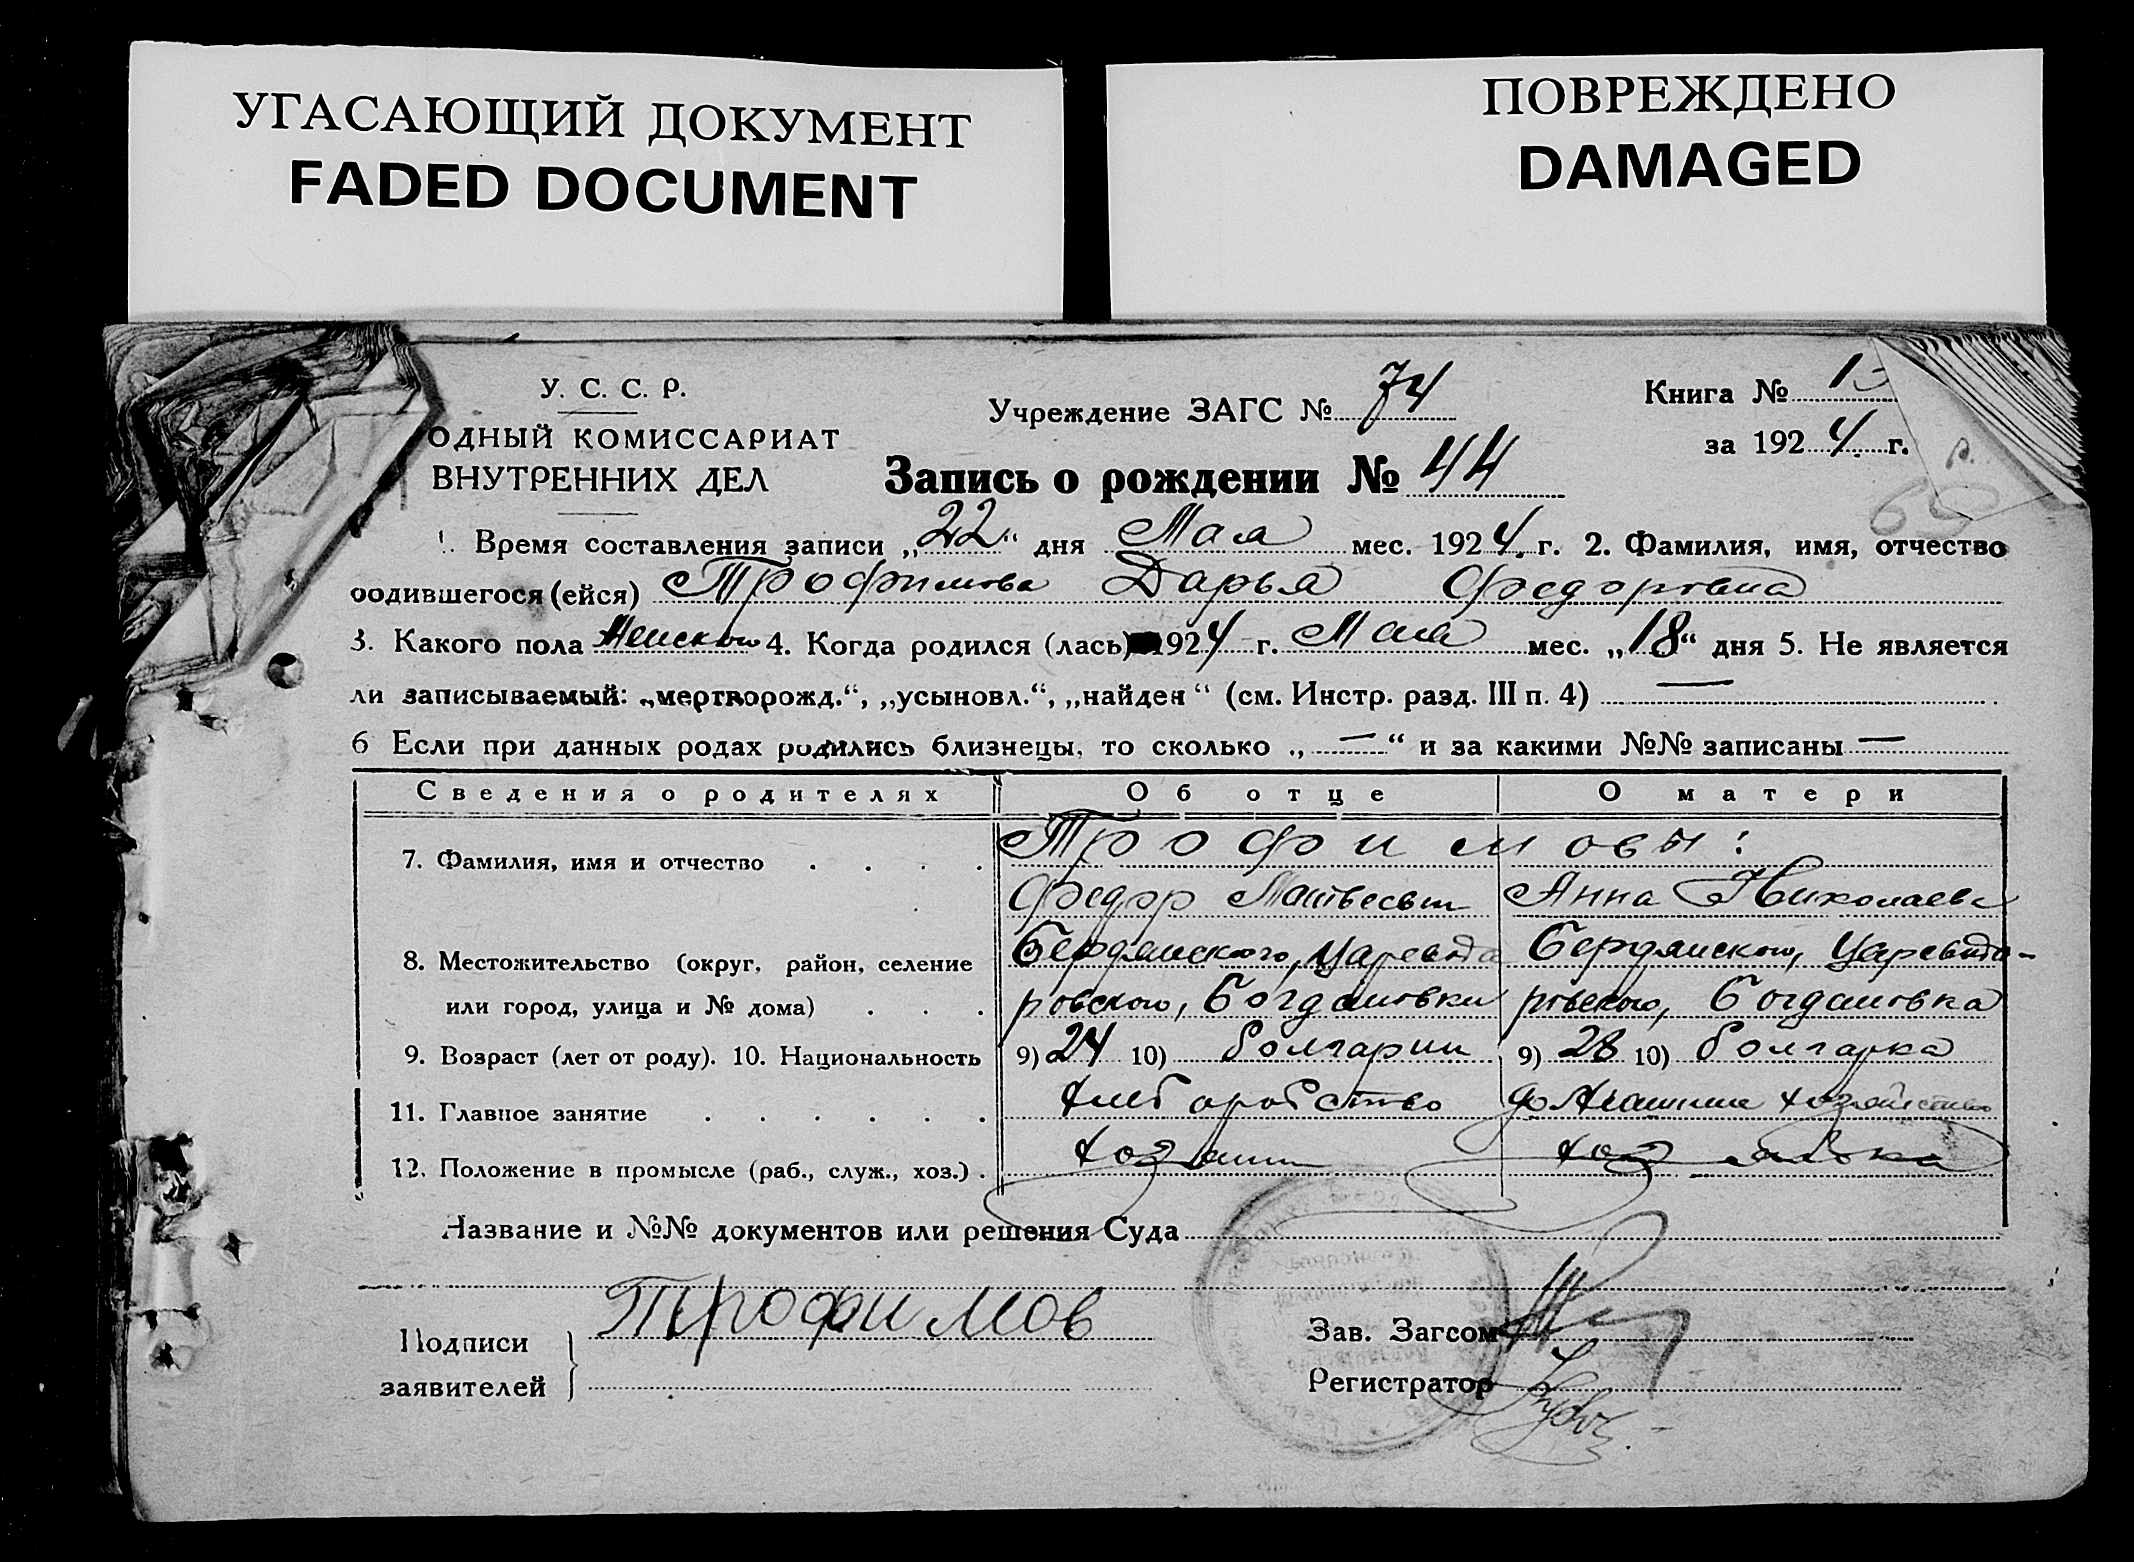 УГАСАЮЩИЙ ДОКУМЕНТ
FADED DOCUMENT
ПОВРЕЖДЕНО
DAMAGED
У. С. С. Р.
ОДНЫЙ КОМИССАРИАТ
ВНУТРЕННИХ ДЕЛ
Учреждение ЗАГС № 74
Книга № 1
за 1924 г.
69
Запись о рождении № 44
1. Время составления записи „22“ дня Мая мес. 1924 г. 2. Фамилия, имя, отчество
родившегося (ейся) Трофимова Дарья Федоровна
3. Какого пола Женского 4. Когда родился (лась) 1924 г. Мая мес. „18“ дня 5. Не является
ли записываемый: „мертворожд.“, „усыновл.“, „найден“ (см. Инстр. разд. III п. 4) —
6 Если при данных родах родились близнецы, то сколько „—“ и за какими №№ записаны —
Сведения о родителях Об отце О матери
7. Фамилия, имя и отчество . . . . Трофимовы:
Федор Матвеевич Анна Николаевн
8. Местожительство (округ, район, селение Бердянского, Царевода Бердянского, Цареводо-
или город, улица и № дома) . . . ровского, Богдановки ровского, Богдановка
9. Возраст (лет от роду). 10. Национальность 9) 24 10) болгарин 9) 28 10) болгарка
11. Главное занятие . . . . . . хлебаробство домашнее хозяйство
12. Положение в промысле (раб., служ., хоз.) . хозяин хозяйка
Название и №№ документов или решения Суда
Подписи
заявителей
Трофимов
Зав. Загсом
Регистратор